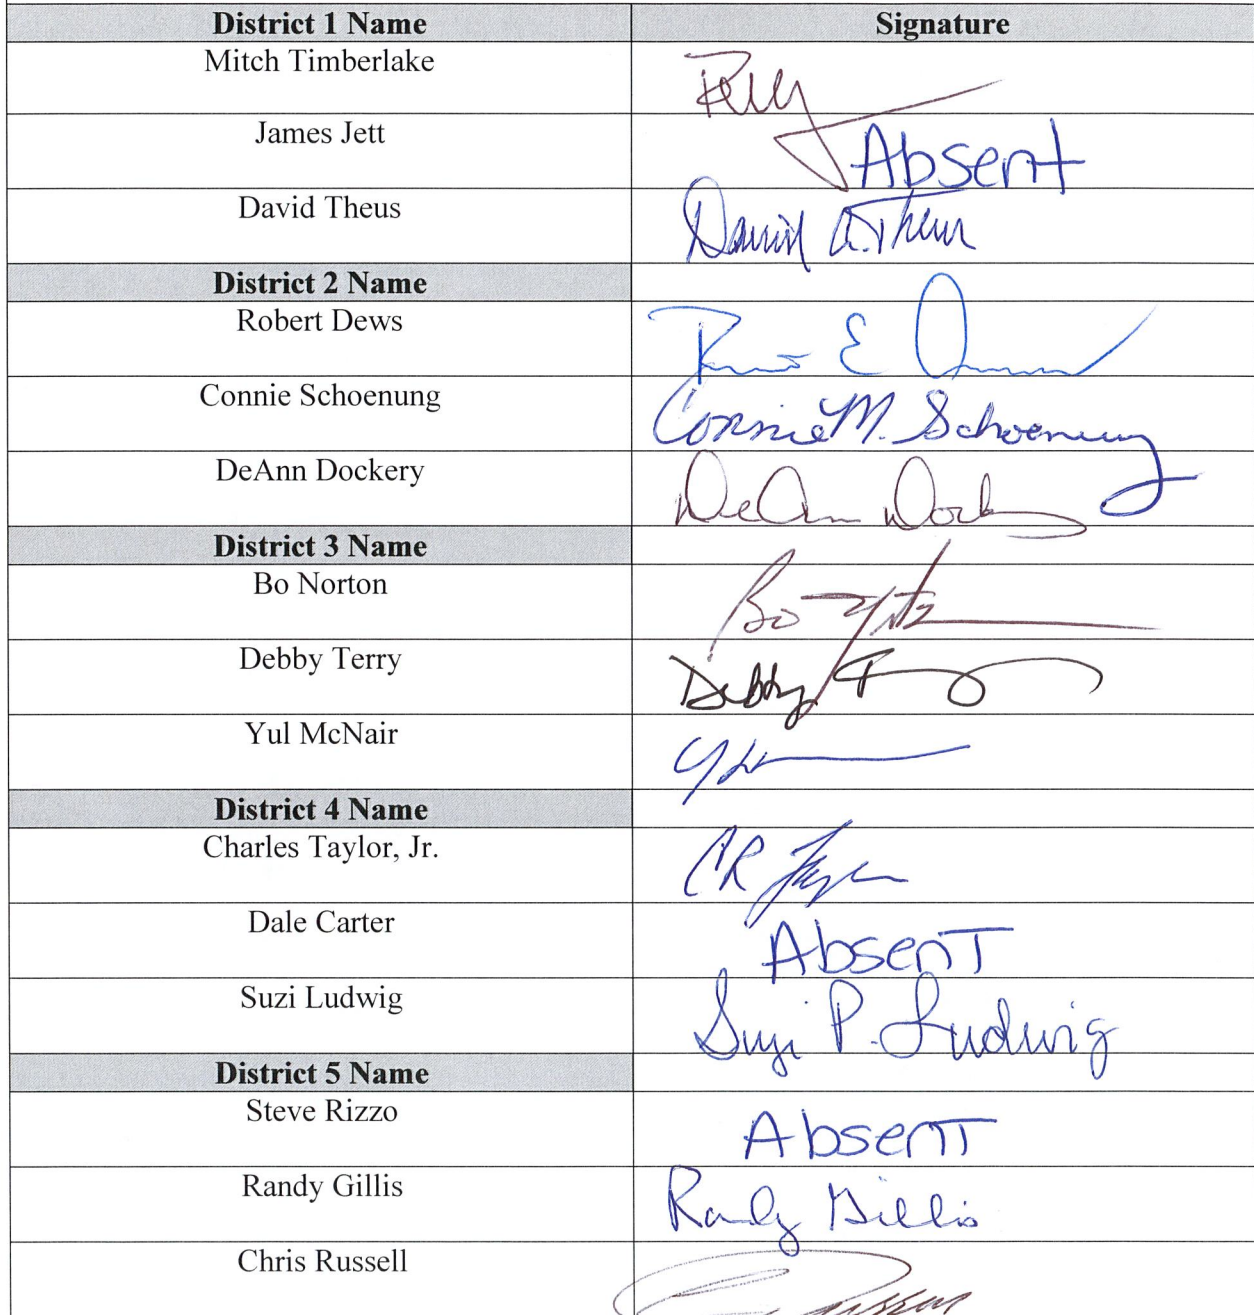 District 1 Name Signature
Mitch Timberlake
James Jett Absent
David Theus David A. Theus
District 2 Name
Robert Dews
Connie Schoenung Connie M. Schoenung
DeAnn Dockery DeAnn Dockery
District 3 Name
Bo Norton Bo
Debby Terry Debby
Yul McNair
District 4 Name
Charles Taylor, Jr. CR Taylor
Dale Carter Absent
Suzi Ludwig Suzi P. Ludwig
District 5 Name
Steve Rizzo Absent
Randy Gillis Randy Gillis
Chris Russell Russell